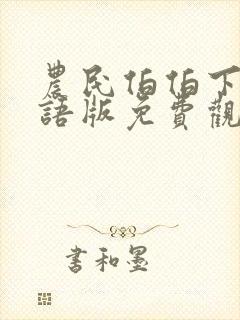 農民伯伯下
語版免費觀
書和墨